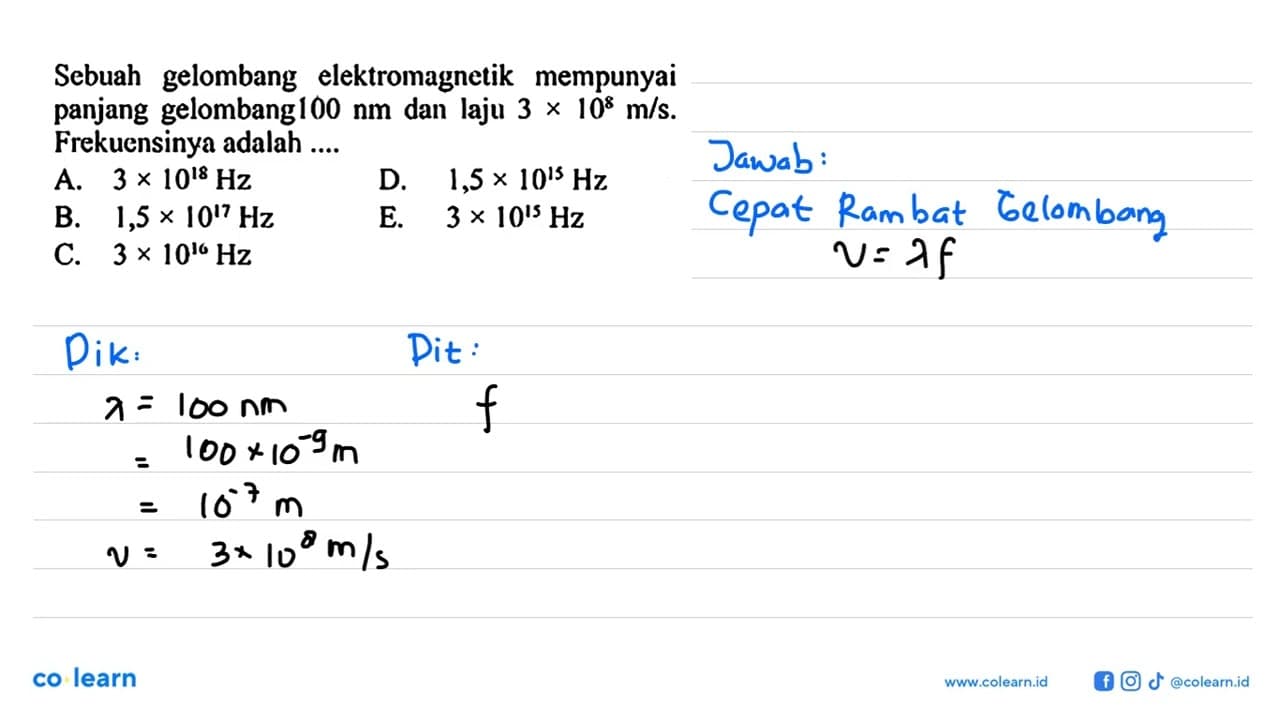 Sebuah gelombang elektromagnetik mempunyai
panjang gelombang100 nm dan laju 3 × 10⁸ m/s.
Frekuensinya adalah ....
A. 3 × 10¹⁸ Hz
B. 1,5 × 10¹⁷ Hz
C. 3 × 10¹⁶ Hz
D. 1,5 × 10¹⁵ Hz
E. 3 × 10¹⁵ Hz
Jawab:
Cepat Rambat Gelombang
v = λf
Dik:
λ = 100 nm
= 100 × 10⁻⁹ m
= 10⁻⁷ m
v = 3 × 10⁸ m/s
Dit:
f
co learn
www.colearn.id
@colearn.id